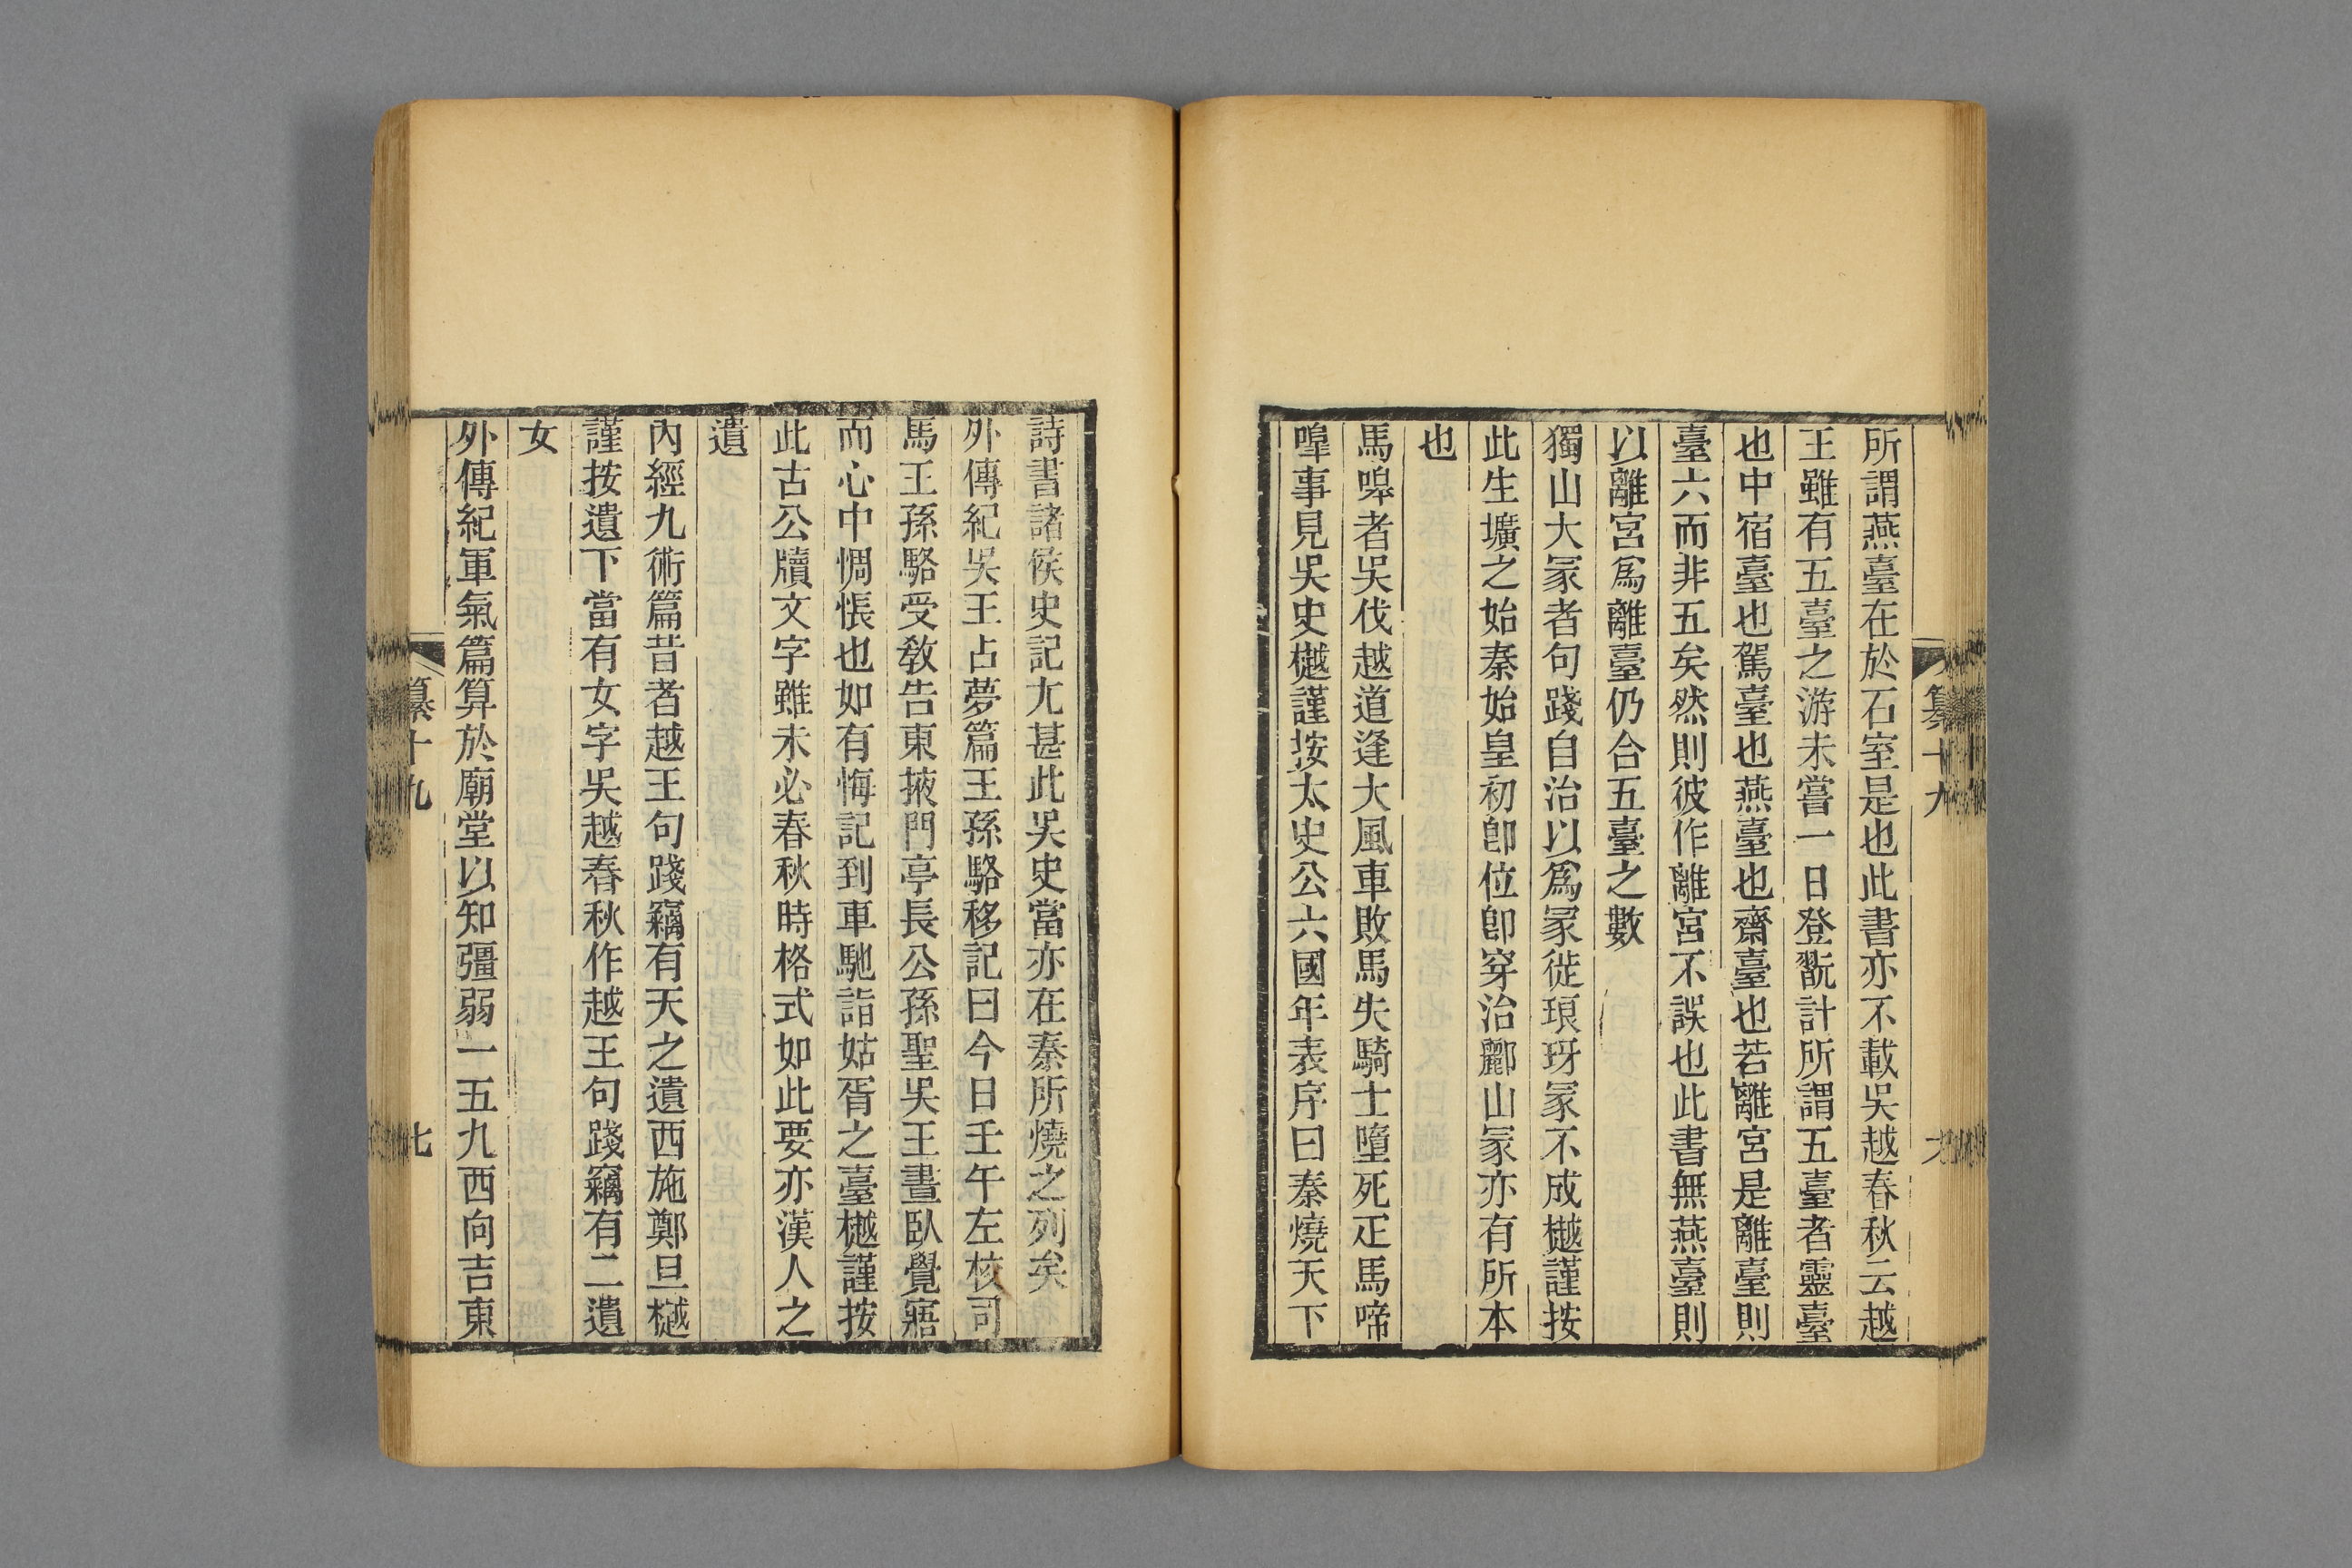 所謂燕臺在於石室是也此書亦不載吳越春秋云越
王雖有五臺之游未嘗一日登翫計所謂五臺者靈臺
也中宿臺也駕臺也燕臺也齋臺也若離宮是離臺則
臺六而非五矣然則彼作離宮不誤也此書無燕臺則
以離宮爲離臺仍合五臺之數
獨山大冢者句踐自治以爲冢徙琅玡冢不成樾謹按
此生壙之始秦始皇初卽位卽穿治酈山冢亦有所本
也
馬嘷者吳伐越道逢大風車敗馬失騎士墮死疋馬啼
嘷事見吳史樾謹按太史公六國年表序曰秦燒天下
詩書諸侯史記尤甚此吳史當亦在秦所燒之列矣
外傳紀吳王占夢篇王孫駱移記曰今日壬午左校司
馬王孫駱受敎告東掖門亭長公孫聖吳王晝臥覺寤
而心中惆悵也如有悔記到車馳詣姑胥之臺樾謹按
此古公牘文字雖未必春秋時格式如此要亦漢人之
遺
內經九術篇昔者越王句踐竊有天之遺西施鄭旦樾
謹按遺下當有女字吳越春秋作越王句踐竊有二遺
女
外傳紀軍氣篇算於廟堂以知彊弱一五九西向吉東
纂十九
七